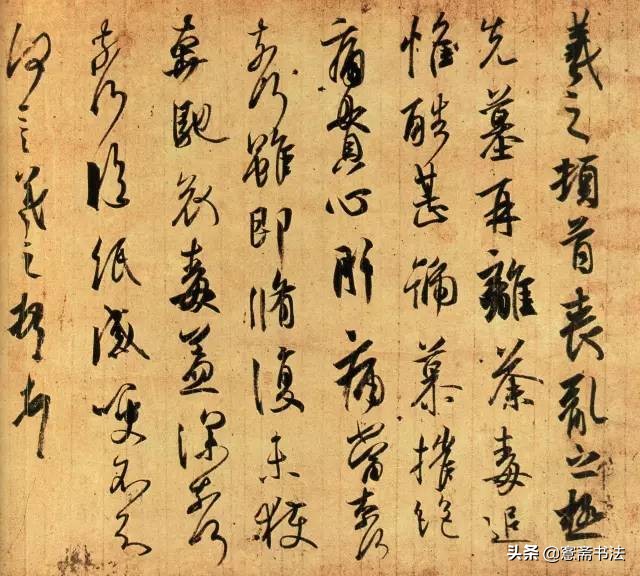 羲之頓首喪亂之極
先墓再離荼毒追
惟酷甚號慕摧絕
痛貫心肝痛當奈何
奈何雖即脩復未獲
奔馳哀毒益深奈何
奈何臨紙感哽不知
何言羲之頓首頓首
头条 @愙斋书法